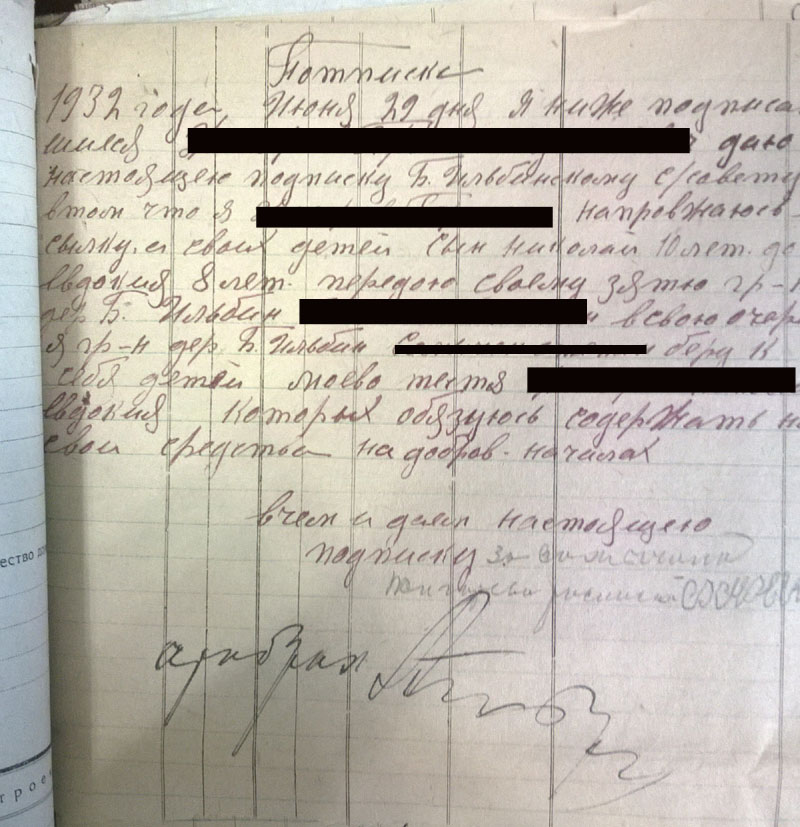 Потписка
1932 года Июня 29 дня Я ниже подписа
шиися даю
настоящею подписку Б. Ильбинскому с/совету
втом что я напровжаюсь
сылку. а своих детей сын николай 10 лет. до
Евдокия 8 лет. передою своему зятю гр-н
дер Б. Ильбин всвою очер
я гр-н дер. Б. Ильбин беру к
себя детей моево тестя
Евдокия которых обязуюсь содержать на
свои средства на добров. началах
вчем и даем настоящею
подписку за
ество до
трое